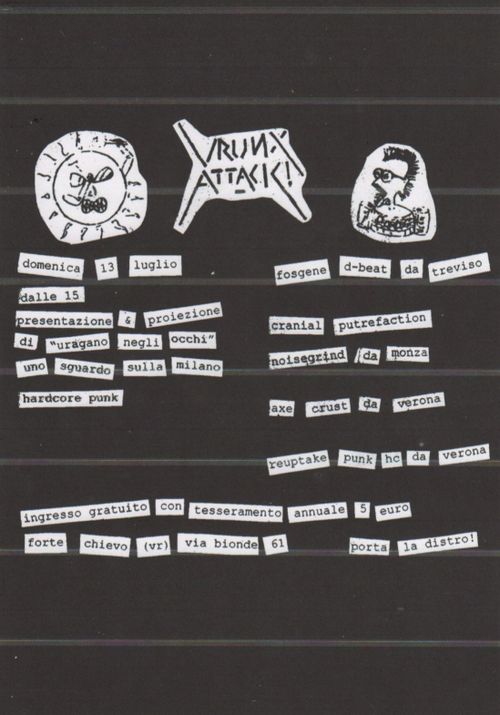 VRUNX
ATTACK!
domenica 13 luglio
dalle 15
presentazione & proiezione
di "uragano negli occhi"
uno sguardo sulla milano
hardcore punk
fosgene d-beat da treviso
cranial putrefaction
noisegrind da monza
axe crust da verona
reuptake punk hc da verona
ingresso gratuito con tesseramento annuale 5 euro
forte chievo (vr) via bionde 61
porta la distro!